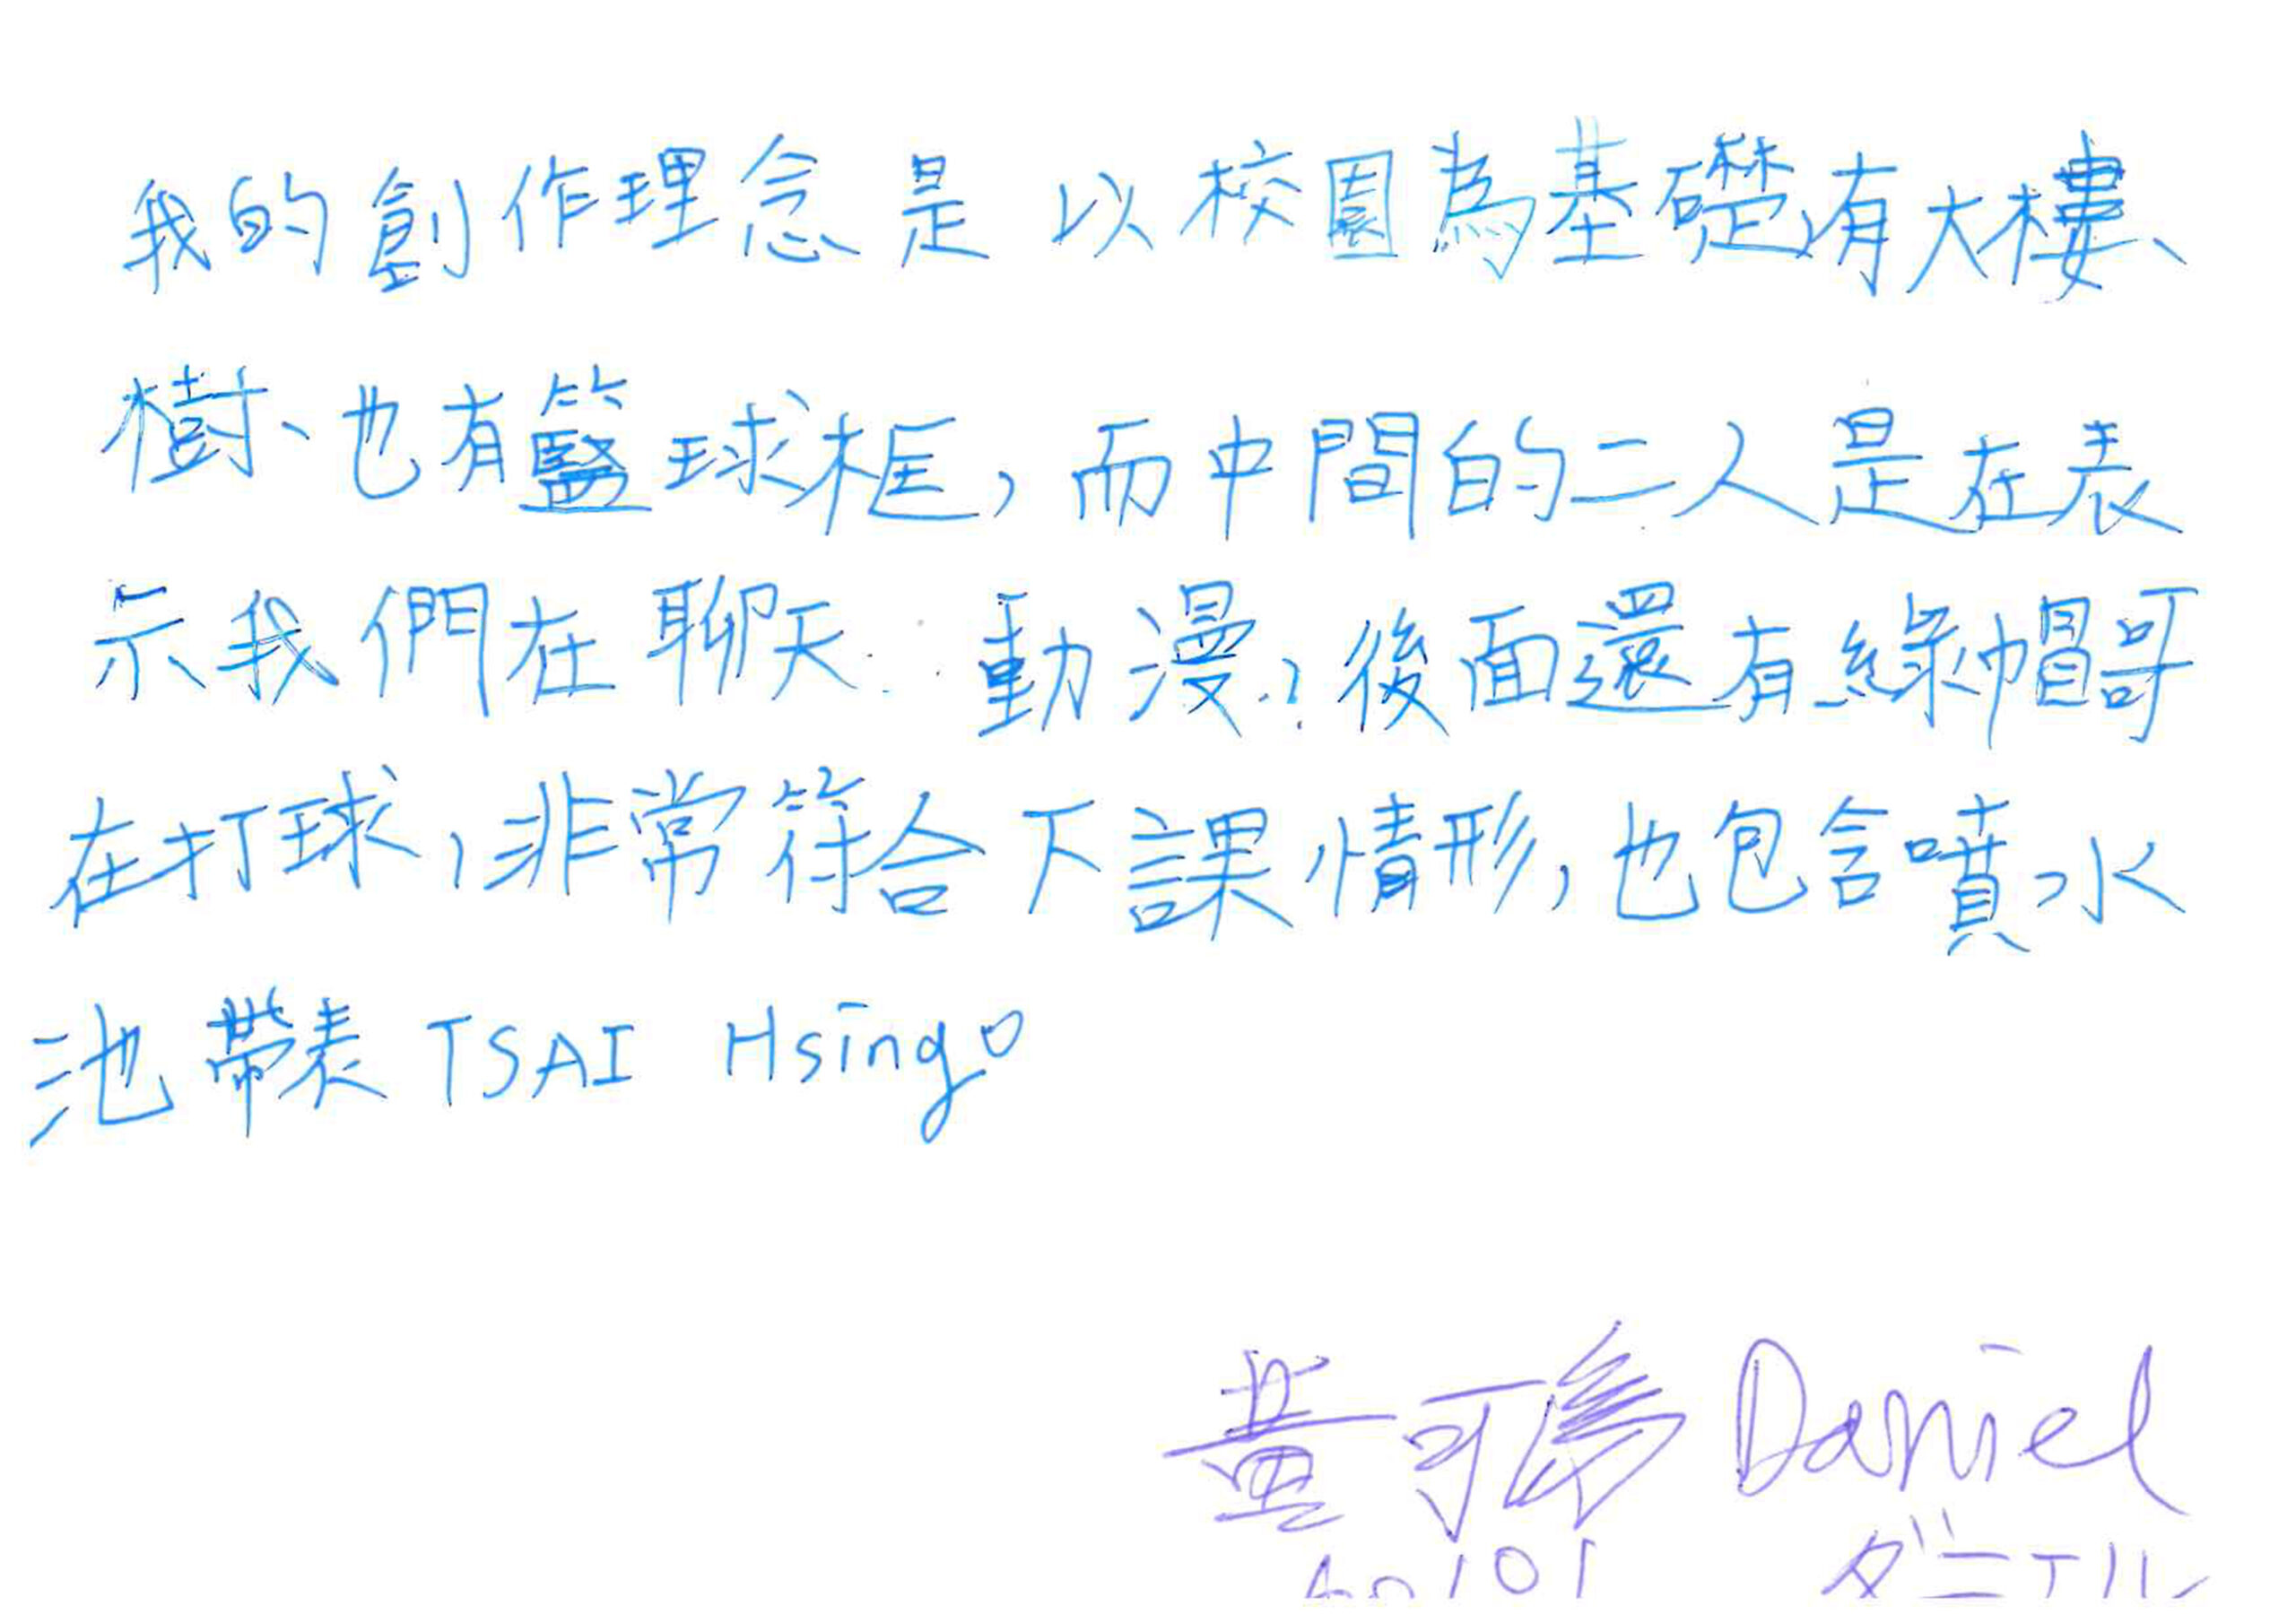 我的創作理念是以校園為基礎,有大樓、
樹、也有籃球框,而中間的二人是在表
示我們在聊天 動漫,後面還有綠帽哥
在打球,非常符合下課情形,也包含噴水
池帶表TSAI Hsing。
黃可 Daniel
101 ダニエル